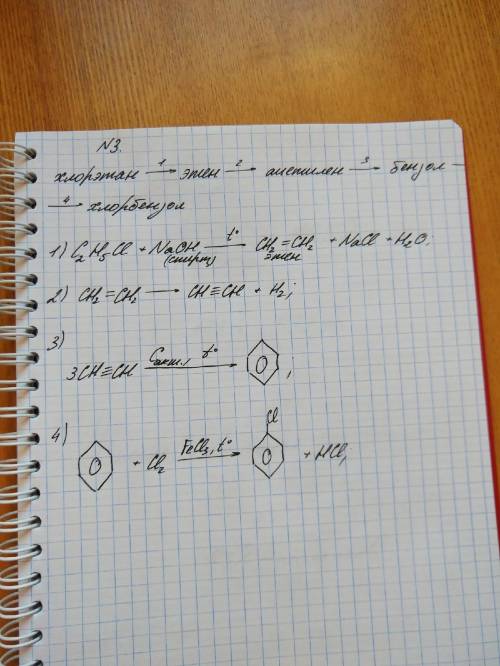 N3.
хлорэтан 1→ этен 2→ ацетилен 3→ бензол —
4→ хлорбензол
1) C₂H₅Cl + NaOH (спирт) t°→ CH₂=CH₂ этен + NaCl + H₂O;
2) CH₂=CH₂ → CH≡CH + H₂;
3)
3CH≡CH Cакт., t°→ ;
4) + Cl₂ FeCl₃, t°→ Cl + HCl;